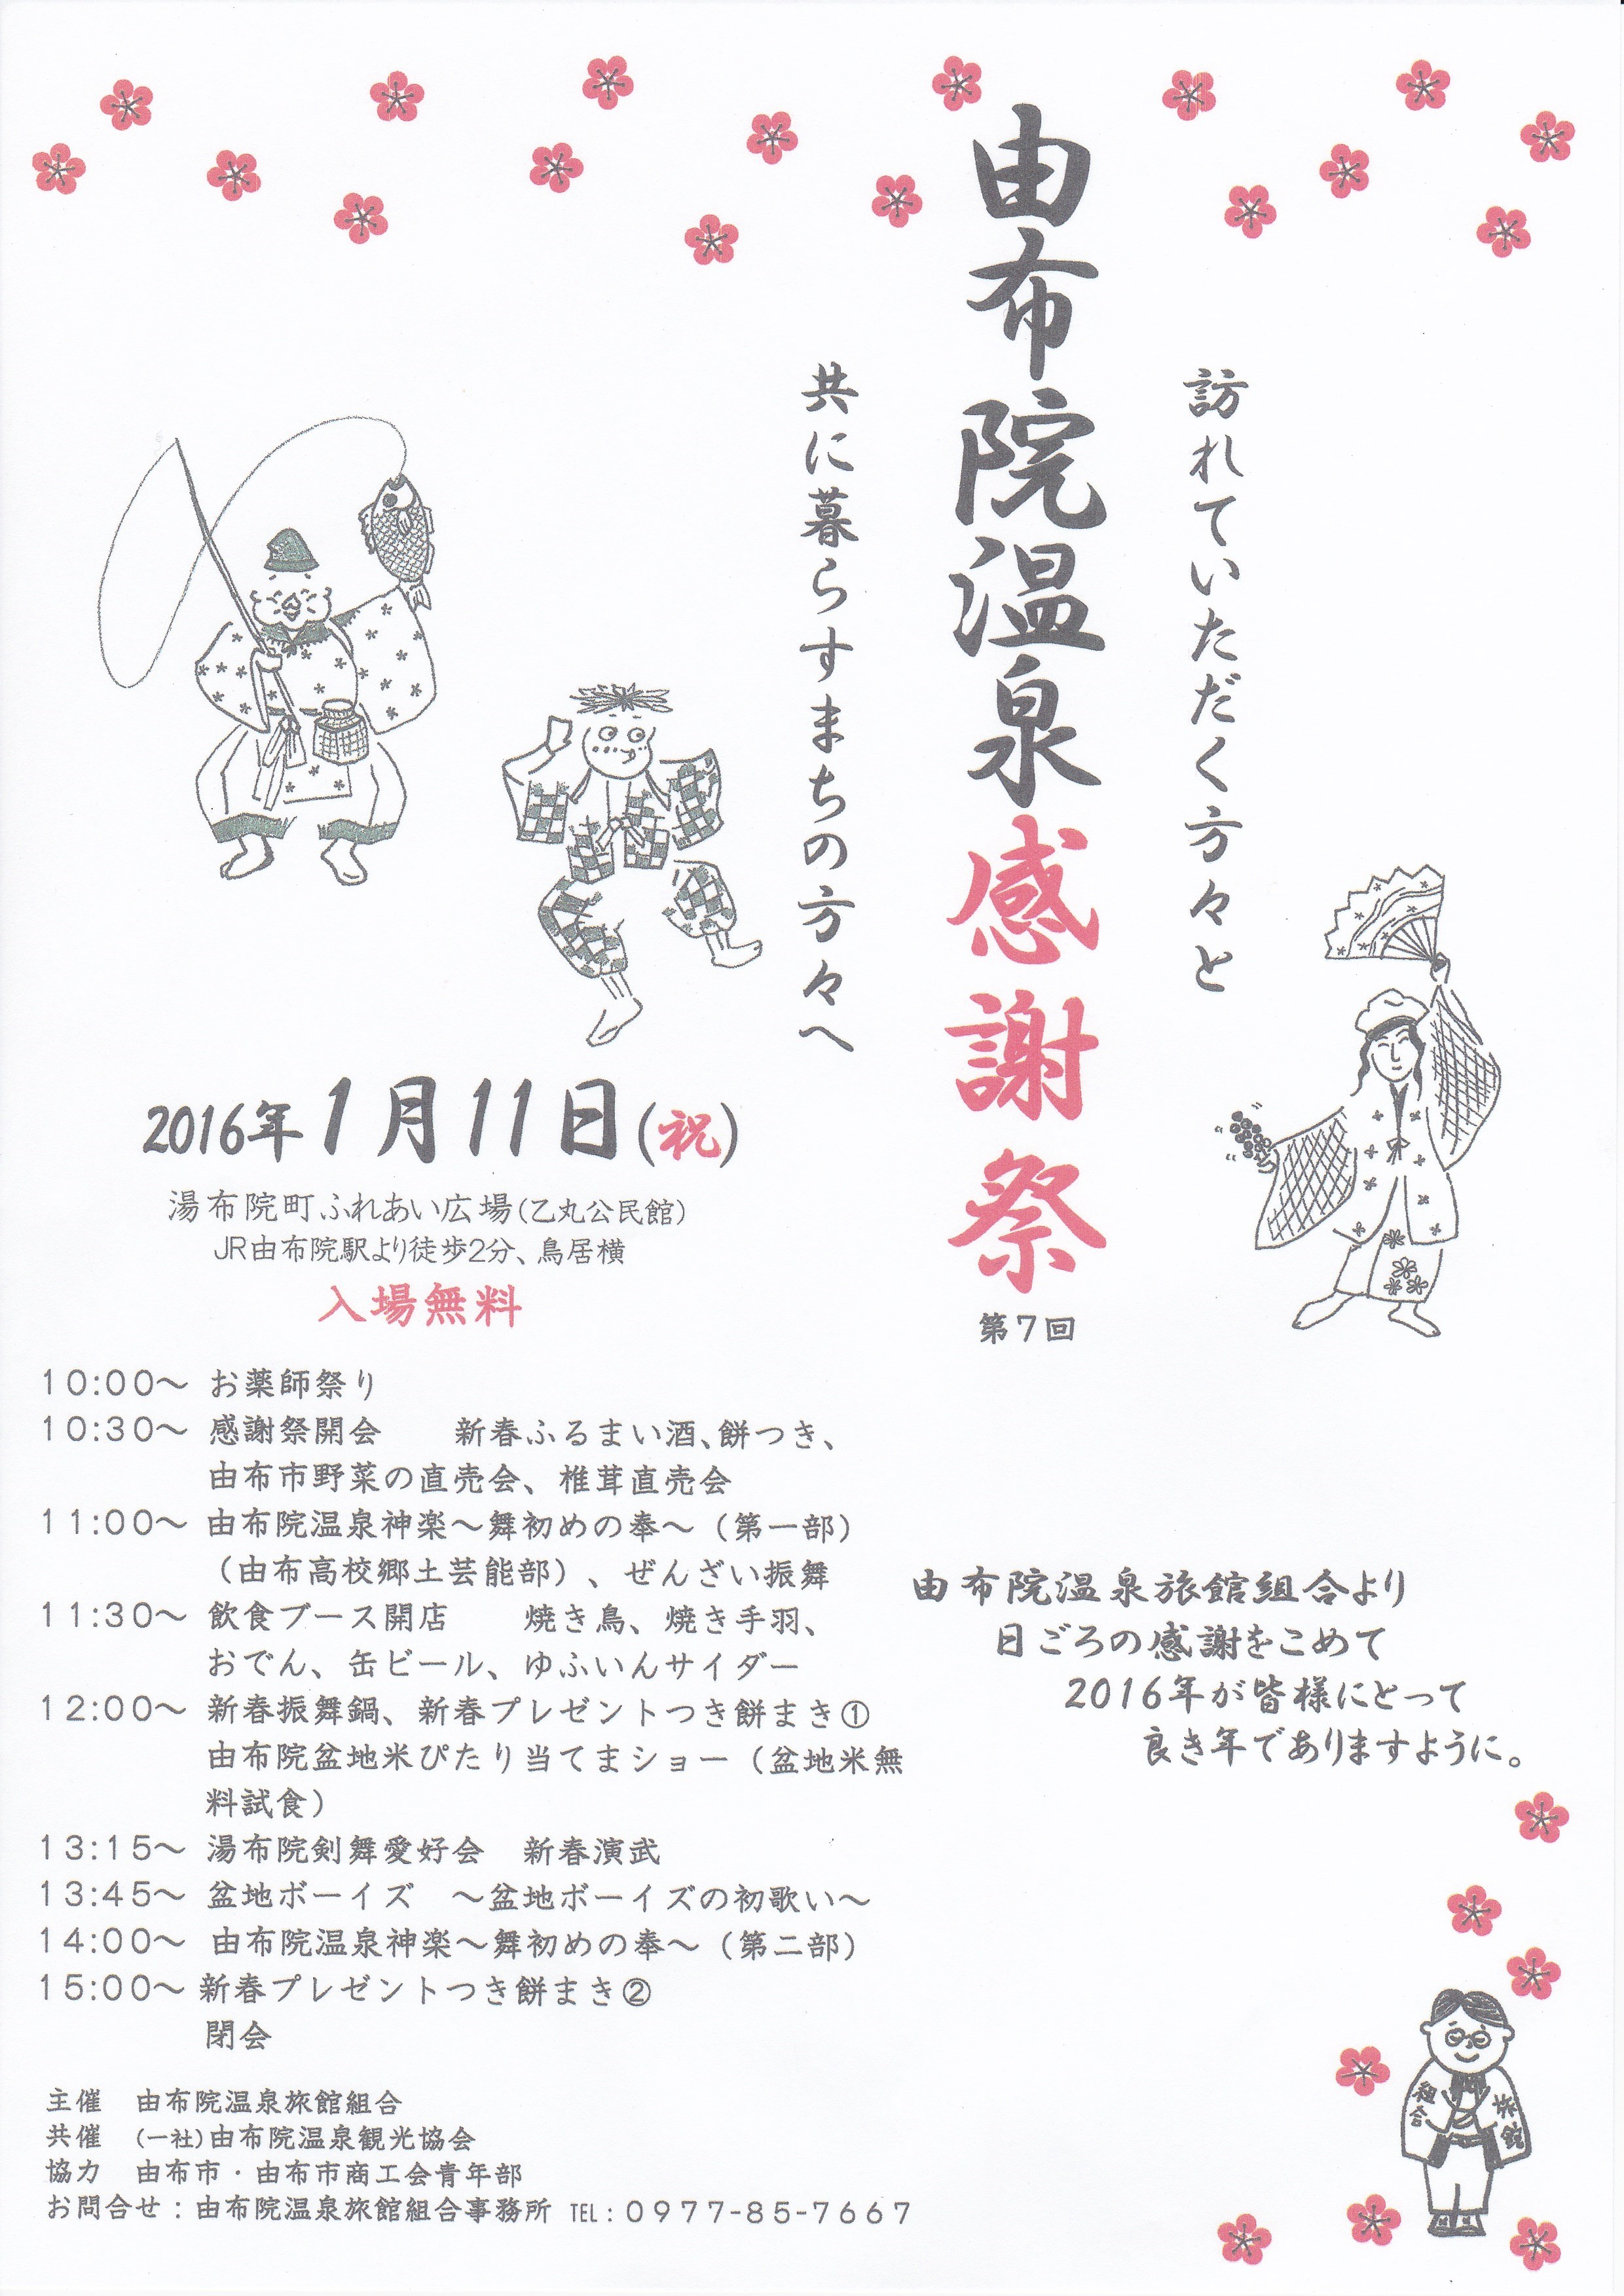 訪れていただく方々と
由布院温泉感謝祭
第7回
共に暮らすまちの方々へ
2016年1月11日(祝)
湯布院町ふれあい広場(乙丸公民館)
JR由布院駅より徒歩2分、鳥居横
入場無料
10:00～ お薬師祭り
10:30～ 感謝祭開会　新春ふるまい酒、餅つき、
由布市野菜の直売会、椎茸直売会
11:00～ 由布院温泉神楽～舞初めの奉～（第一部）
（由布高校郷土芸能部）、ぜんざい振舞
11:30～ 飲食ブース開店　焼き鳥、焼き手羽、
おでん、缶ビール、ゆふいんサイダー
12:00～ 新春振舞鍋、新春プレゼントつき餅まき①
由布院盆地米ぴたり当てまショー（盆地米無
料試食）
13:15～ 湯布院剣舞愛好会　新春演武
13:45～ 盆地ボーイズ　～盆地ボーイズの初歌い～
14:00～ 由布院温泉神楽～舞初めの奉～（第二部）
15:00～ 新春プレゼントつき餅まき②
閉会
由布院温泉旅館組合より
日ごろの感謝をこめて
2016年が皆様にとって
良き年でありますように。
旅館
組合
主催　由布院温泉旅館組合
共催　(一社)由布院温泉観光協会
協力　由布市・由布市商工会青年部
お問合せ：由布院温泉旅館組合事務所 TEL：0977-85-7667